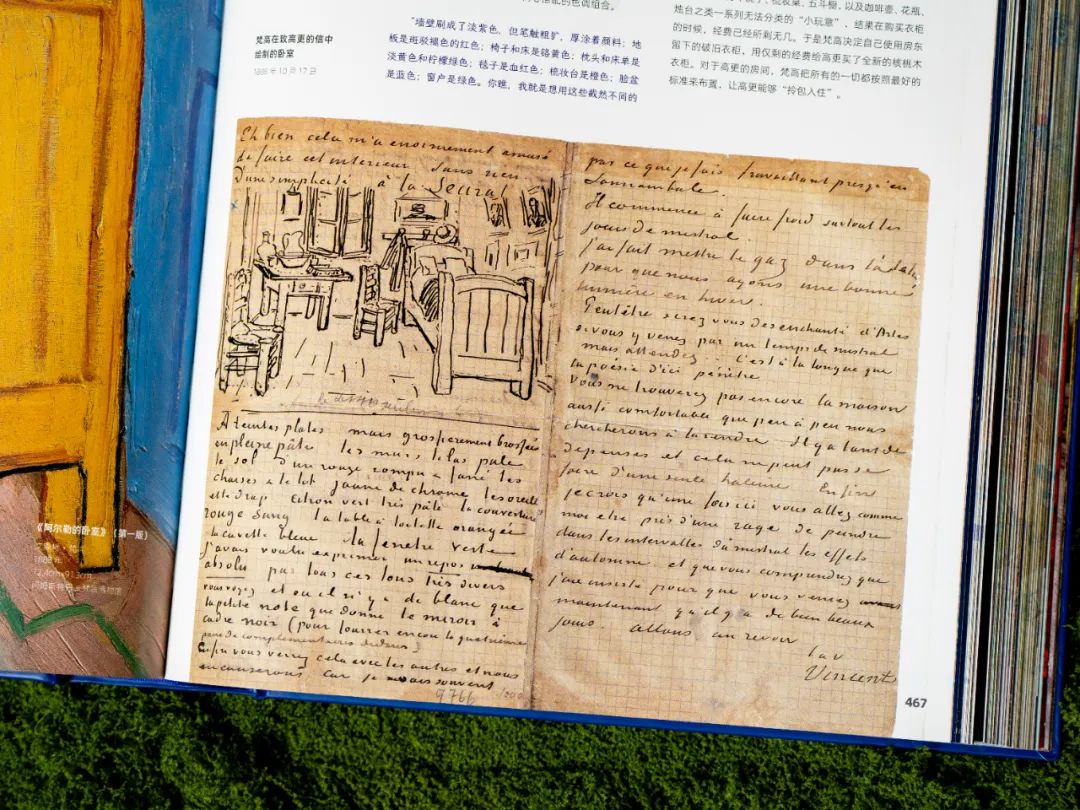 的色调组合。
梵高在致高更的信中
绘制的卧室
1888年10月17日
“墙壁刷成了淡紫色，但笔触粗犷，厚涂着颜料；地
板是斑驳褪色的红色；椅子和床是铬黄色；枕头和床单是
淡黄色和柠檬绿色；毯子是血红色；梳妆台是橙色；脸盆
是蓝色；窗户是绿色。你瞧，我就是想用这些截然不同的
五斗橱，以及咖啡壶、花瓶、
烛台之类一系列无法分类的“小玩意”，结果在购买衣柜
的时候，经费已经所剩无几。于是梵高决定自己使用房东
留下的破旧衣柜，用仅剩的经费给高更买了全新的核桃木
衣柜。对于高更的房间，梵高把所有的一切都按照最好的
标准来布置，让高更能够“拎包入住”。
Eh bien cela m'a enormement amusé
de faire cet interieur Sans rien
D'une simplicité à la Seurat
A teintes plates mais grossierement brossées
en pleine pâte les murs lilas pale
le sol d'un rouge rompu & fané les
chaises & le lit jaune de chrome les oreillers
et le drap citron vert très pâle la couverture
rouge sang la table à toilette orangée
la cuvette bleue la fenetre verte
J'avais voulu exprimer un repos
absolu par tous ces tons très divers
vous voyez et ou il n'y a de blanc que
la petite note que donne le miroir à
cadre noir (pour fourrer encore la quatrième
paire de complementaires dedans)
Enfin vous verrez cela avec les autres et nous
en causerons Car je ne sais souvent
9766
pas ce que je fais travaillant presqu'en
Somnambule.
Il commence à faire froid surtout les
jours de mistral.
J'ai fait mettre le gaz dans l'atelier
pour que nous ayons une bonne
lumière en hiver.
Peutêtre serez vous desenchanté d'Arles
si vous y venez par un temps de mistral
mais attendez – C'est à la longue que
la poésie d'ici pénètre
Vous ne trouverez pas encore la maison
aussi comfortable que peu à peu nous
chercherons à la rendre Il y a tant de
depenses et cela ne peut pas se
faire d'une seule haleine Enfin
je crois qu'une fois ici vous allez comme
moi etre pris d'une rage de peindre
dans les intervalles du mistral les effets
d'automne. et que vous comprendrez que
j'aie insisté pour que vous veniez
maintenant qu'il y a de bien beaux
jours. allons au revoir
t.à v
Vincent
467
《阿尔勒的卧室》（第一版）
1888年